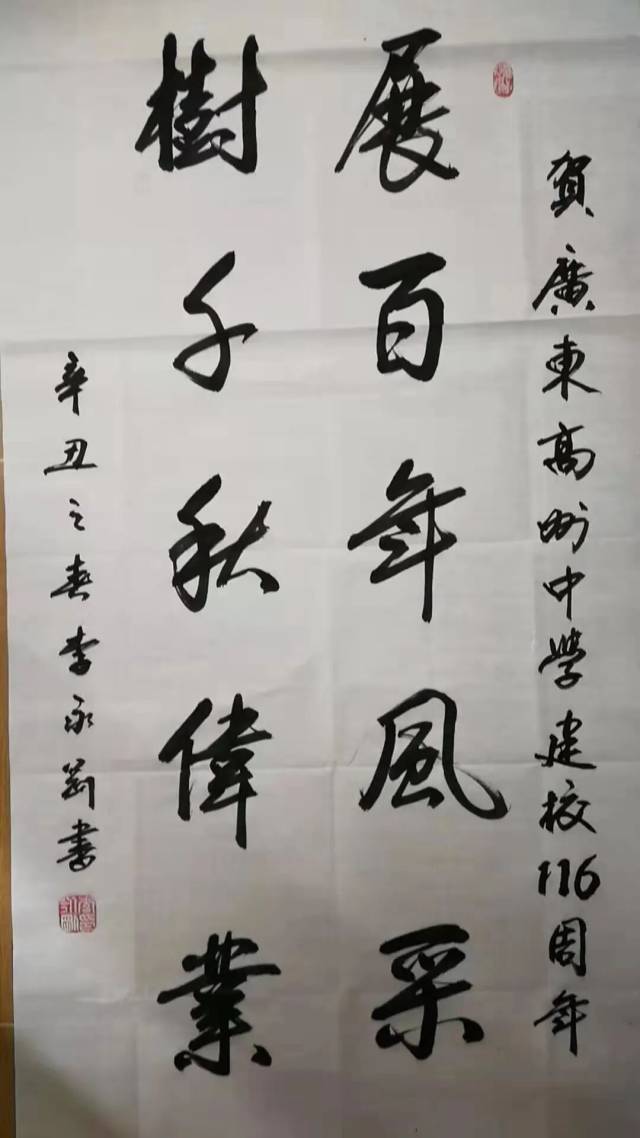 賀廣東高州中學建校116周年
展百年風采
樹千秋偉業
辛丑之春李永剪書